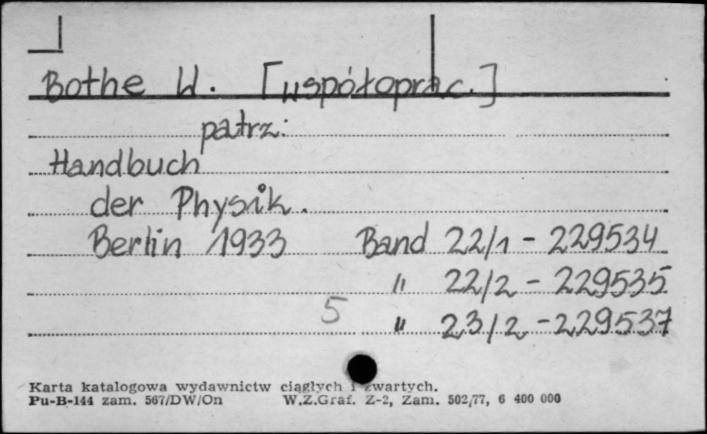 Bothe W. [współoprac.]
patrz:
Handbuch
der Physik.
Berlin 1933 Band 22/1 - 229534
" 22/2 - 229535
5 " 23/2 - 229537
Karta katalogowa wydawnictw ciągłych i zwartych.
Pu-B-144 zam. 567/DW/On W.Z.Graf. Z-2, Zam. 502/77, 6 400 000